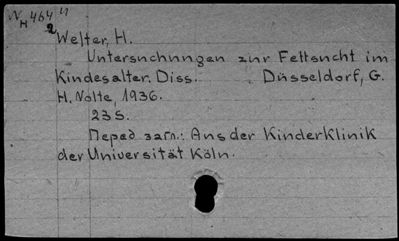 N H 464 n
2
Welter, H.
Untersuchungen zur Fettsucht im
Kindesalter. Diss. Düsseldorf, G.
H. Nolte, 1936.
23 S.
Перед загл.: Aus der Kinderklinik
der Universität Köln.